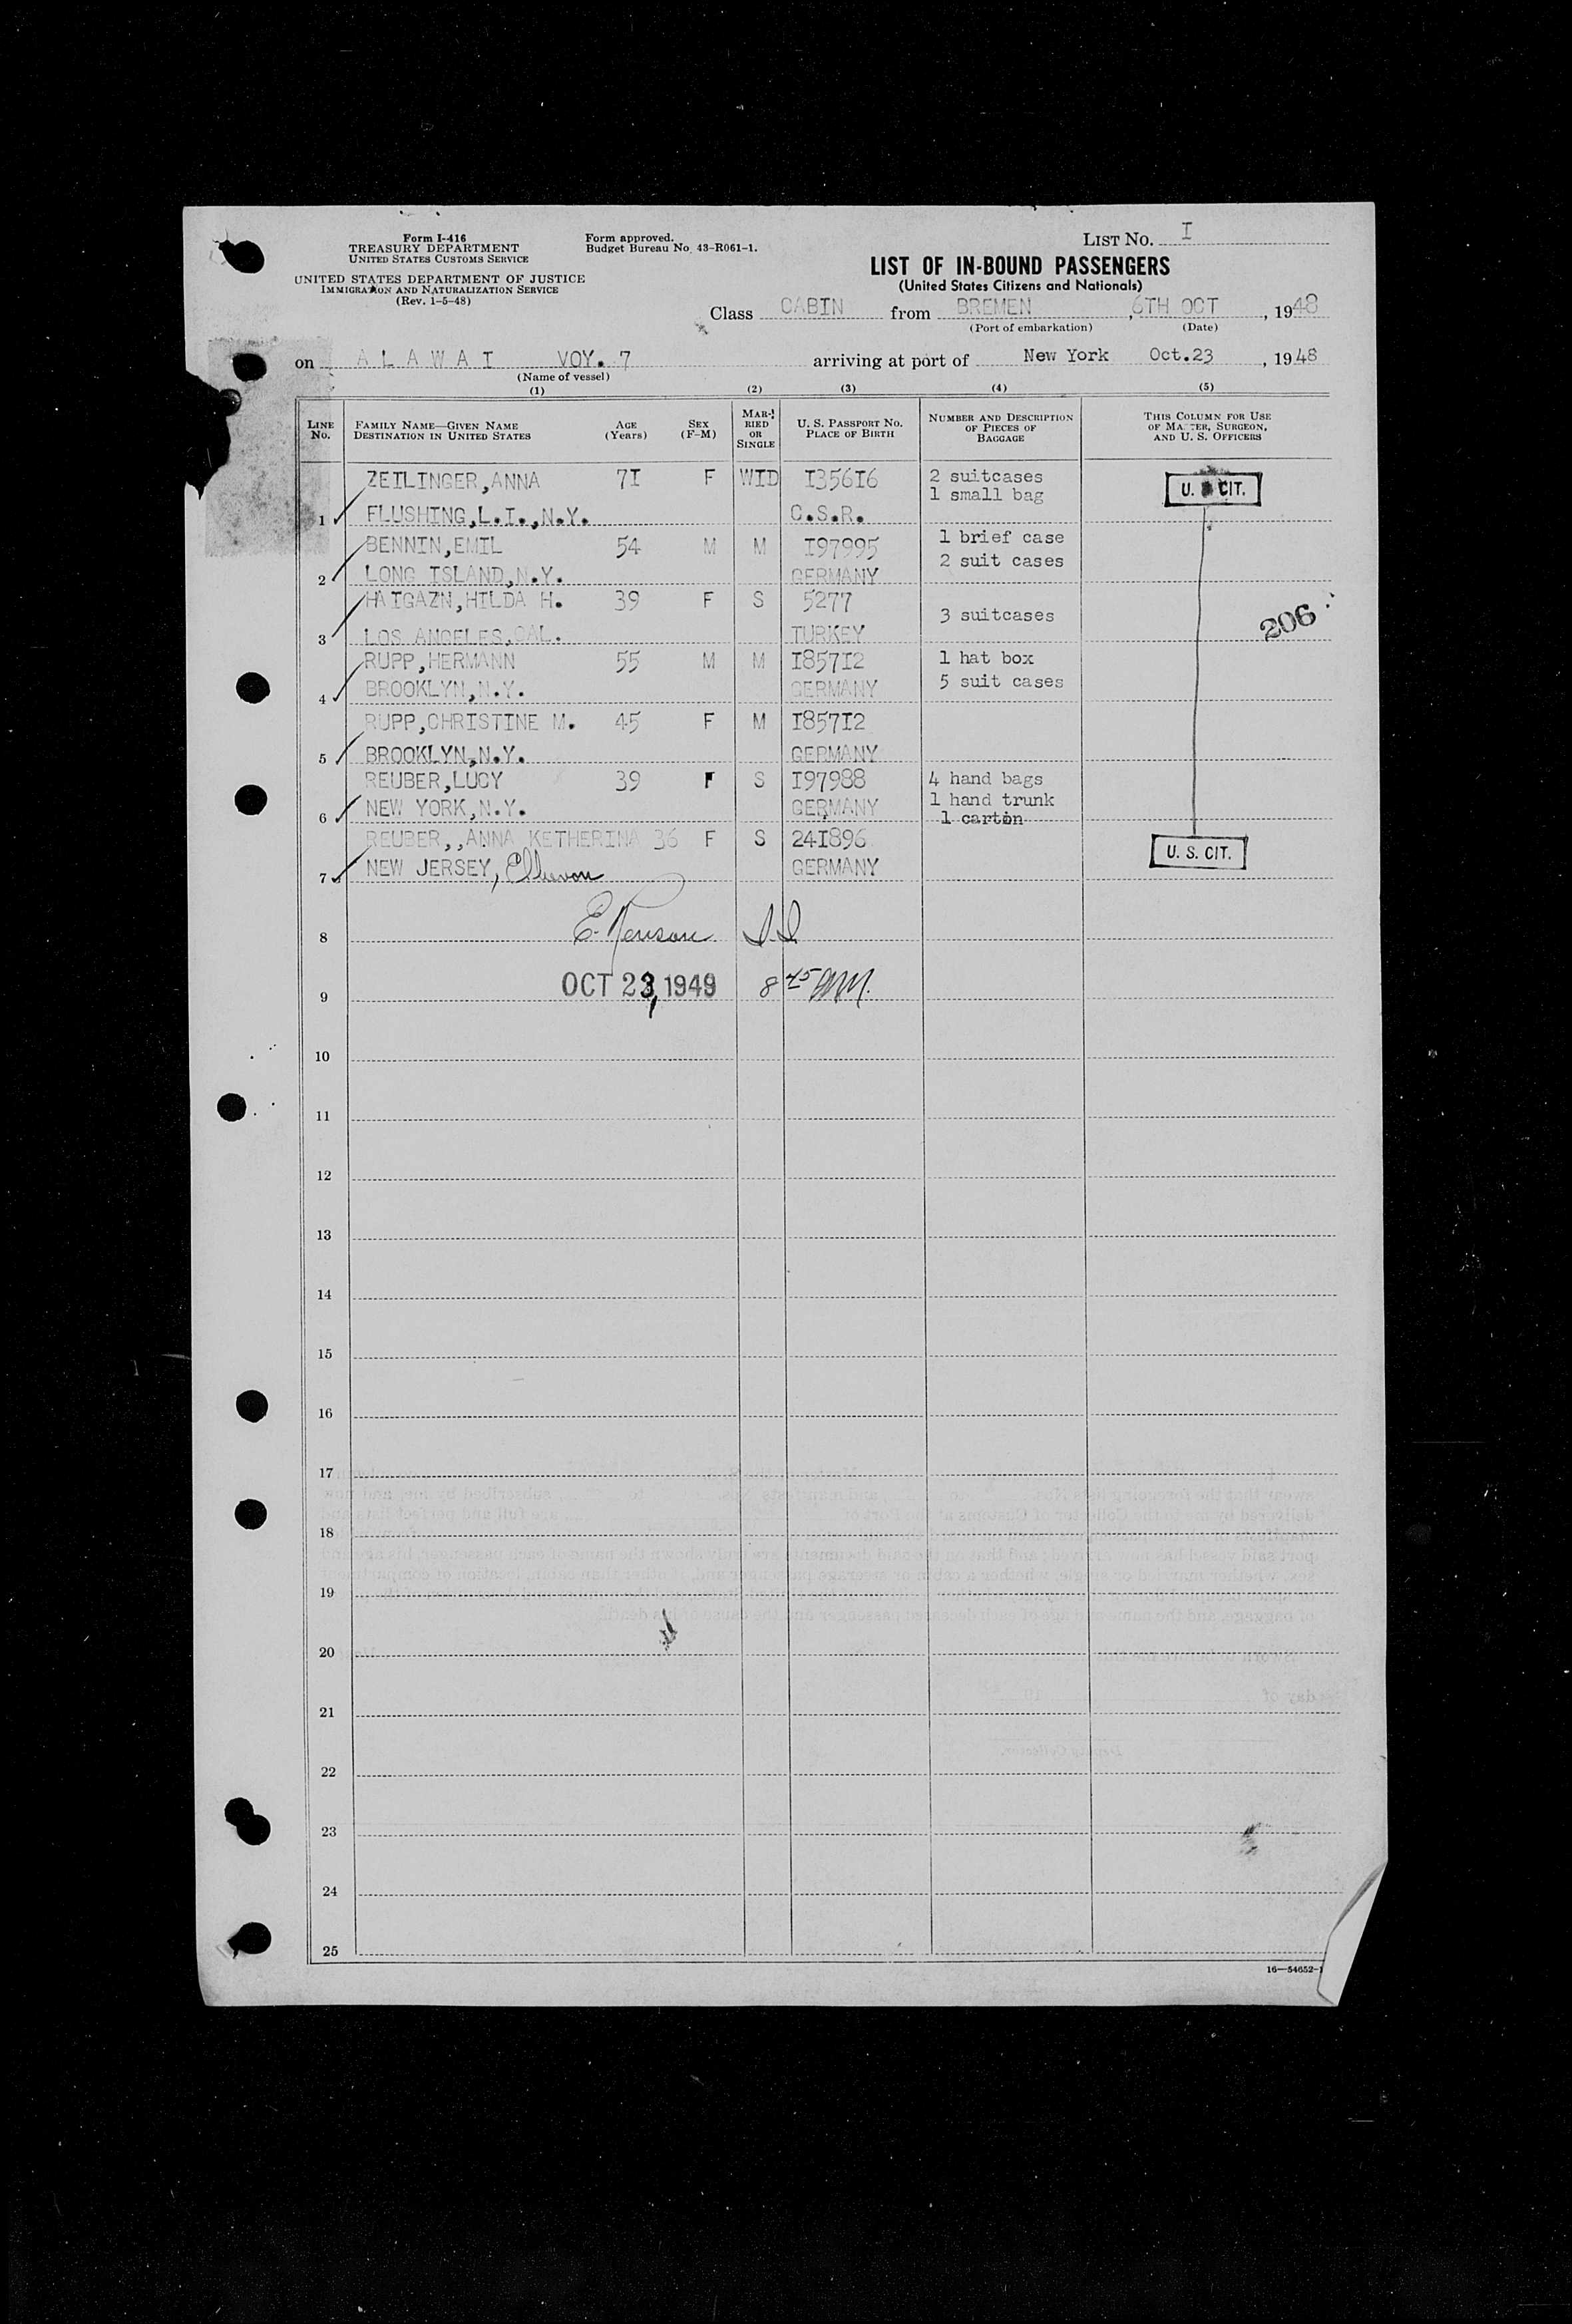 Form I-416
TREASURY DEPARTMENT
UNITED STATES CUSTOMS SERVICE
UNITED STATES DEPARTMENT OF JUSTICE
IMMIGRATION AND NATURALIZATION SERVICE
(Rev. 1-5-48)
Form approved.
Budget Bureau No. 43-R061-1.
LIST No. I
LIST OF IN-BOUND PASSENGERS
(United States Citizens and Nationals)
Class CABIN from BREMEN, 6TH OCT, 1948
(Port of embarkation) (Date)
on ALAWAI VOY. 7 arriving at port of New York Oct.23, 1948
(Name of vessel)
(1) (2) (3) (4) (5)
LINE No. FAMILY NAME—GIVEN NAME DESTINATION IN UNITED STATES AGE (Years) SEX (F-M) MARRIED OR SINGLE U. S. PASSPORT No. PLACE OF BIRTH NUMBER AND DESCRIPTION OF PIECES OF BAGGAGE THIS COLUMN FOR USE OF MASTER, SURGEON, AND U. S. OFFICERS
ZEILINGER,ANNA 7I F WID I356I6 2 suitcases U. S. CIT.
1 small bag
1 FLUSHING,L.I.,N.Y. C.S.R.
BENNIN,EMIL 54 M M I97995 1 brief case
2 suit cases
2 LONG ISLAND,N.Y. GERMANY
HAIGAZN,HILDA H. 39 F S 5277 3 suitcases
206
3 LOS ANGELES,CAL. TURKEY
RUPP,HERMANN 55 M M I857I2 1 hat box
4 BROOKLYN,N.Y. GERMANY 5 suit cases
RUPP,CHRISTINE M. 45 F M I857I2
5 BROOKLYN,N.Y. GERMANY
REUBER,LUCY 39 F S I97988 4 hand bags
1 hand trunk
6 NEW YORK,N.Y. GERMANY 1 carton
REUBER,,ANNA KETHERINA 36 F S 24I896 U. S. CIT.
7 NEW JERSEY, GERMANY
8 E.
9 OCT 23, 1949 8 45 AM.
10
11
12
13
14
15
16
17
18
19
20
21
22
23
24
25
16—54652-1